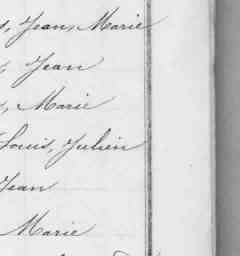 s, Jean, Marie
, Jean
, Marie
Louis, Julien
Jean
Marie